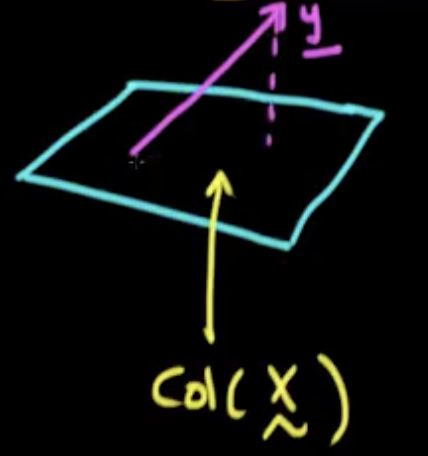 y
Col(X)